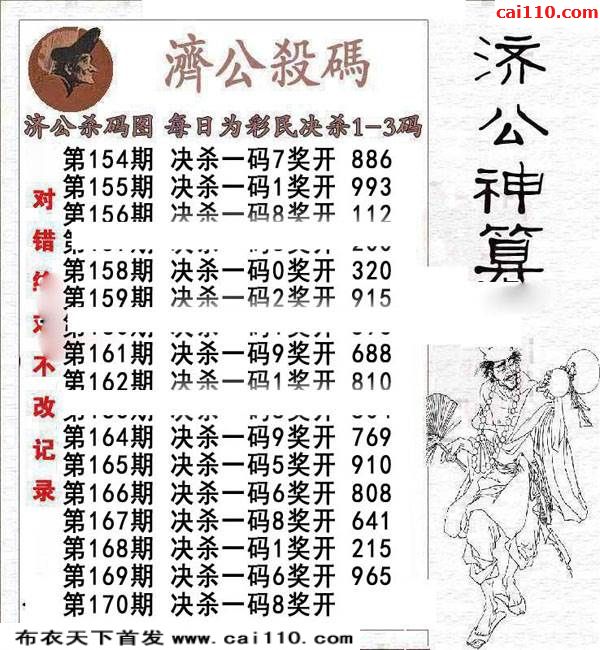 cai110.com
濟公殺碼
济公杀码图 每日为彩民决杀1-3码
第154期 决杀一码7奖开 886
第155期 决杀一码1奖开 993
第156期 决杀一码8奖开 112
第158期 决杀一码0奖开 320
第159期 决杀一码2奖开 915
第161期 决杀一码9奖开 688
第162期 决杀一码1奖开 810
第164期 决杀一码9奖开 769
第165期 决杀一码5奖开 910
第166期 决杀一码6奖开 808
第167期 决杀一码8奖开 641
第168期 决杀一码1奖开 215
第169期 决杀一码6奖开 965
第170期 决杀一码8奖开
对错 不改记录
济公神算
布衣天下首发 www.cai110.com